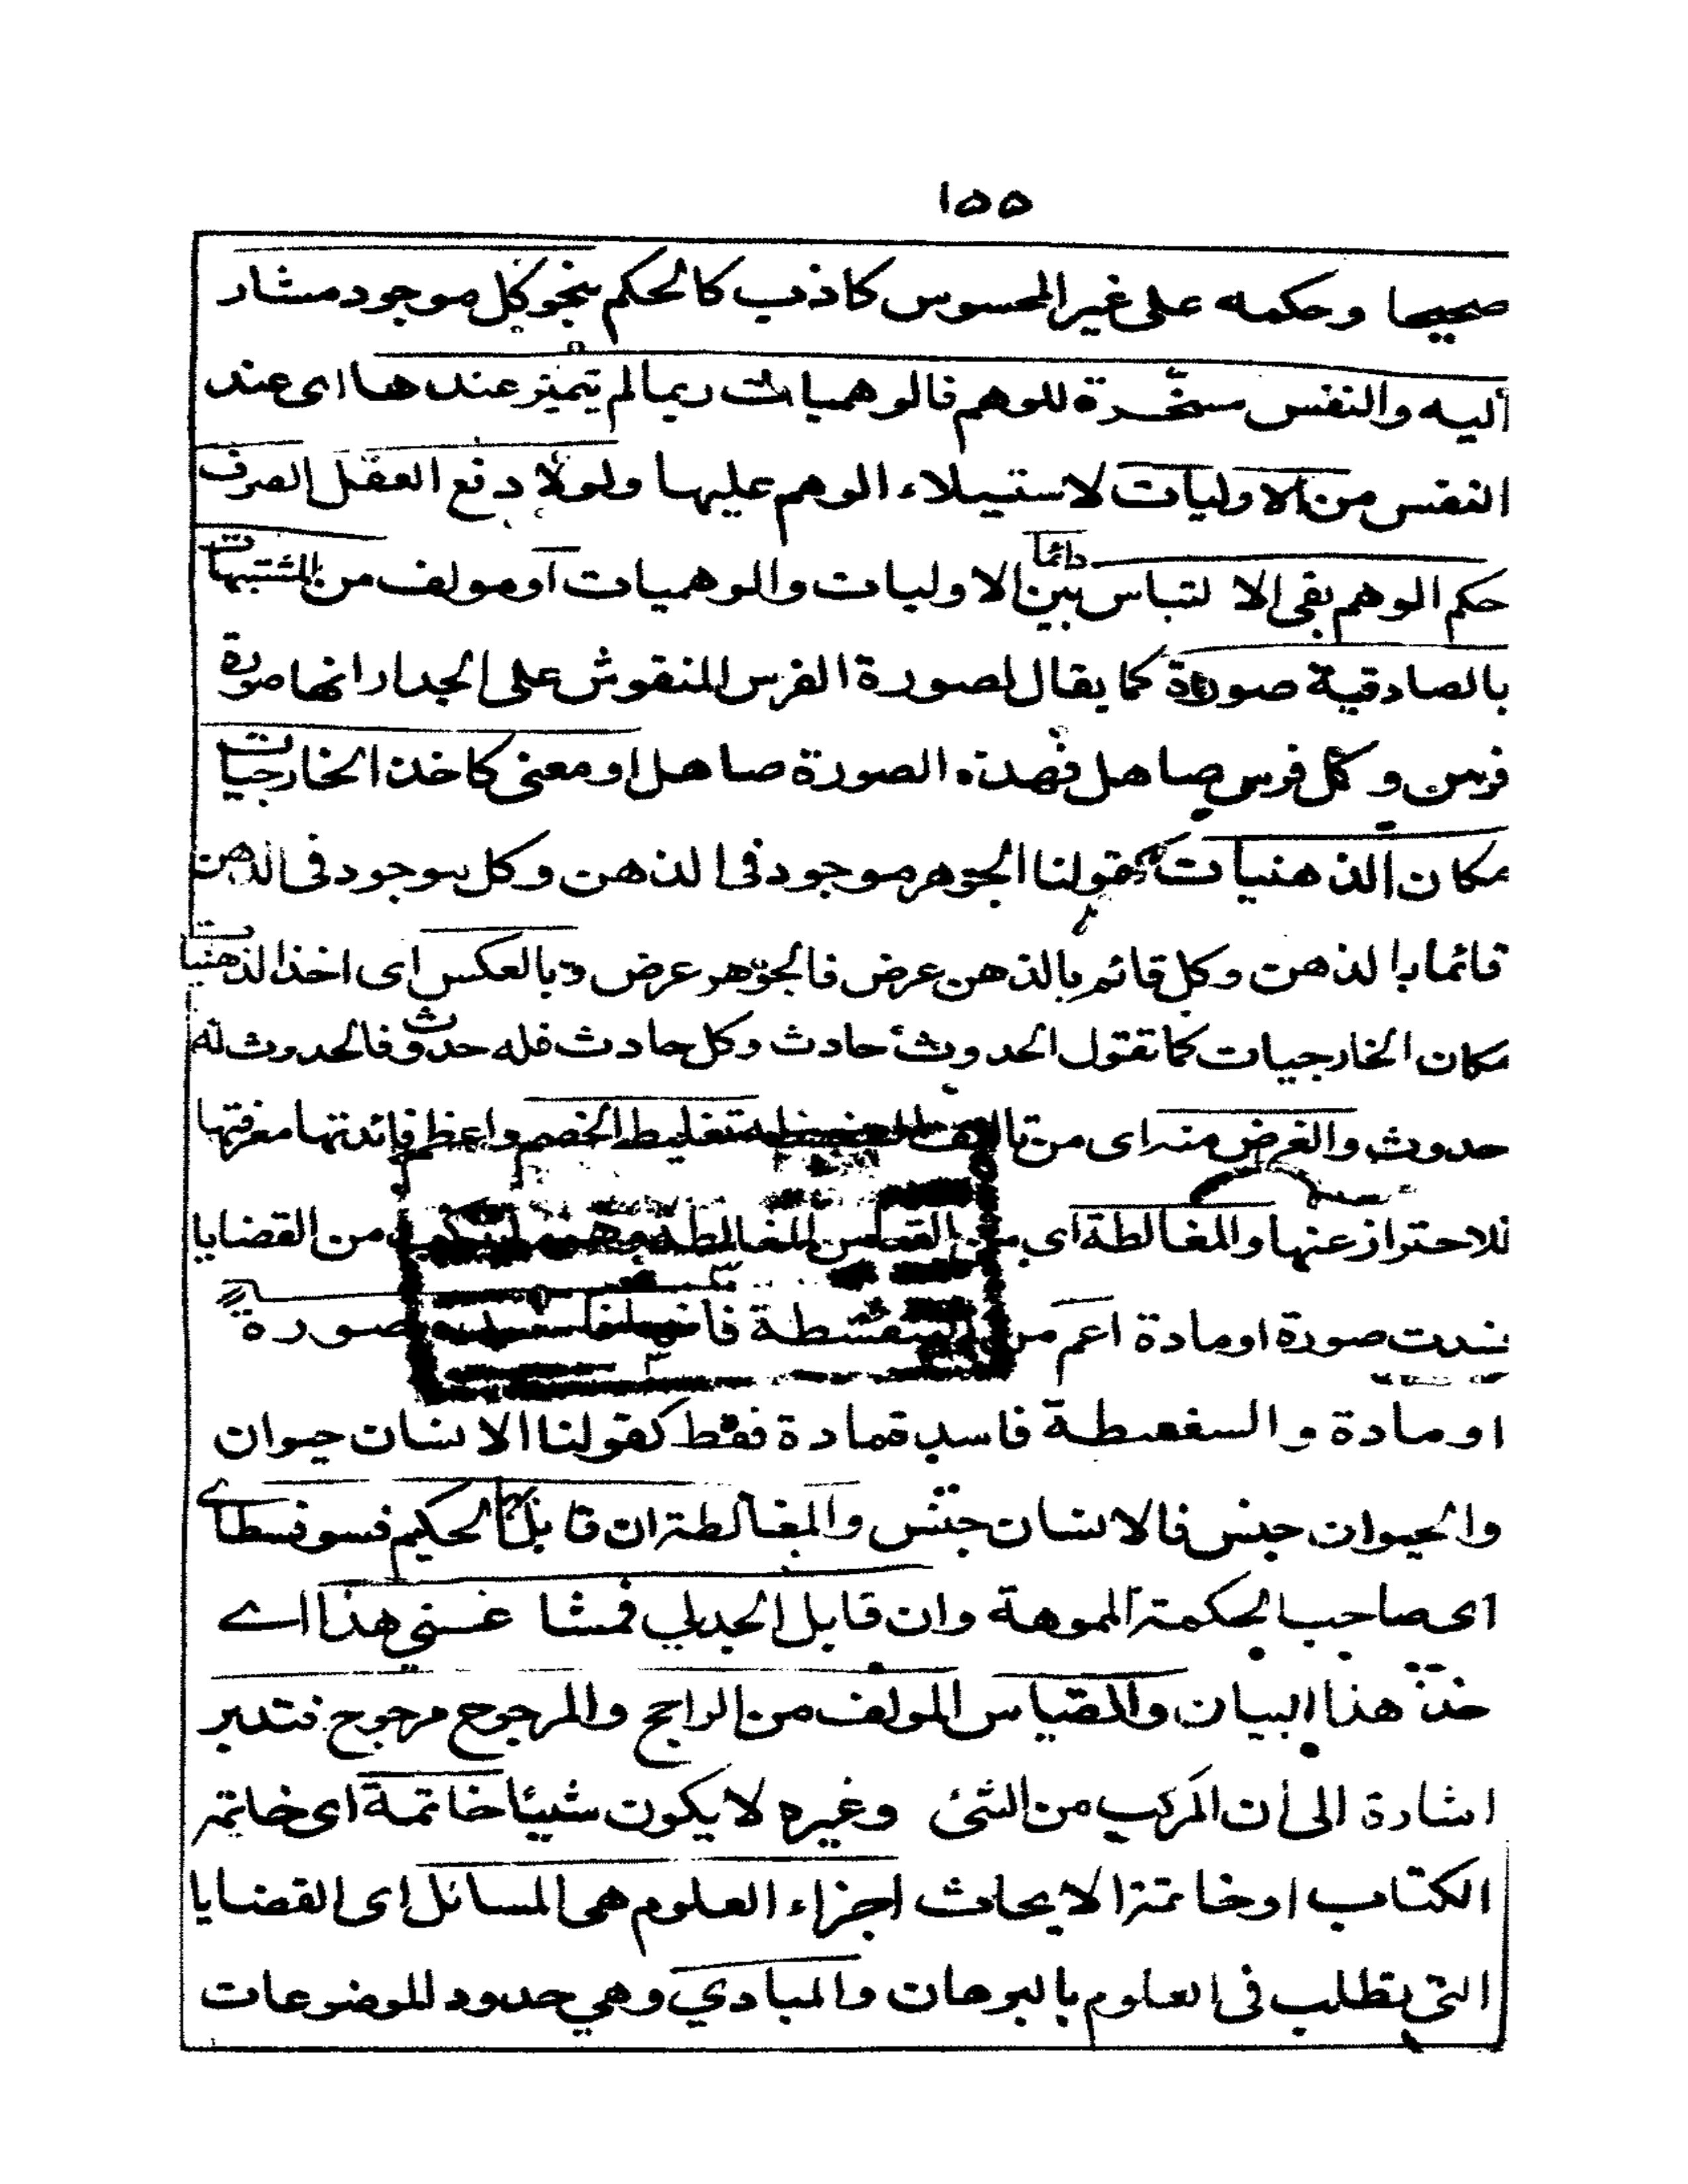 ١٥٥
صحيحا وحكمه على غير المحسوس كاذب كالحكم بنحو كل موجود مشار
اليه والنفس مسخّرة للوهم فالوهميات ربما لم يتميز عندها اى عند
النفس من الاوليات لاستيلاء الوهم عليها ولولا دفع العقل الصرف
حكم الوهم بقى الالتباس دائما بين الاوليات والوهميات او مولف من المشتبهات
بالصادقية صورة كما يقال لصورة الفرس المنقوش على الجدار انها صورة
فرس وكل فرس صاهل فهذه الصورة صاهل او معنى كاخذ الخارجيات
مكان الذهنيات كقولنا الجوهر موجود فى الذهن وكل موجود فى الذهن
قائما بالذهن وكل قائم بالذهن عرض فالجوهر عرض وبالعكس اى اخذ الذهنيات
مكان الخارجيات كما تقول الحدوث حادث وكل حادث فله حدوث فالحدوث له
حدوث والغرض منه اى من تاليف تغليط الخصم واعظم فائدتها معرفتها
للاحتراز عنها والمغالطة اى القياس المغالطة من القضايا
صورة او مادة اعم من السفسطة صورة
او مادة والسفسطة فاسدة مادة فقط كقولنا الانسان حيوان
والحيوان جنس فالانسان جنس والمغالطة ان قابل الحكيم فسوفسطائى
اى صاحب الحكمة المموهة وان قابل الجدلي فمشاغبى هذا اے
خذ هذا البيان والقياس المولف من الراجح والمرجوح مرجوح فتدبر
اشارة الى ان المركب من الشئ وغيره لا يكون شيئا خاتمة اى خاتمة
الكتاب او خاتمة الابحاث اجزاء العلوم هى المسائل اى القضايا
التى تطلب فى العلوم بالبرهان والمبادي وهي حدود للموضوعات